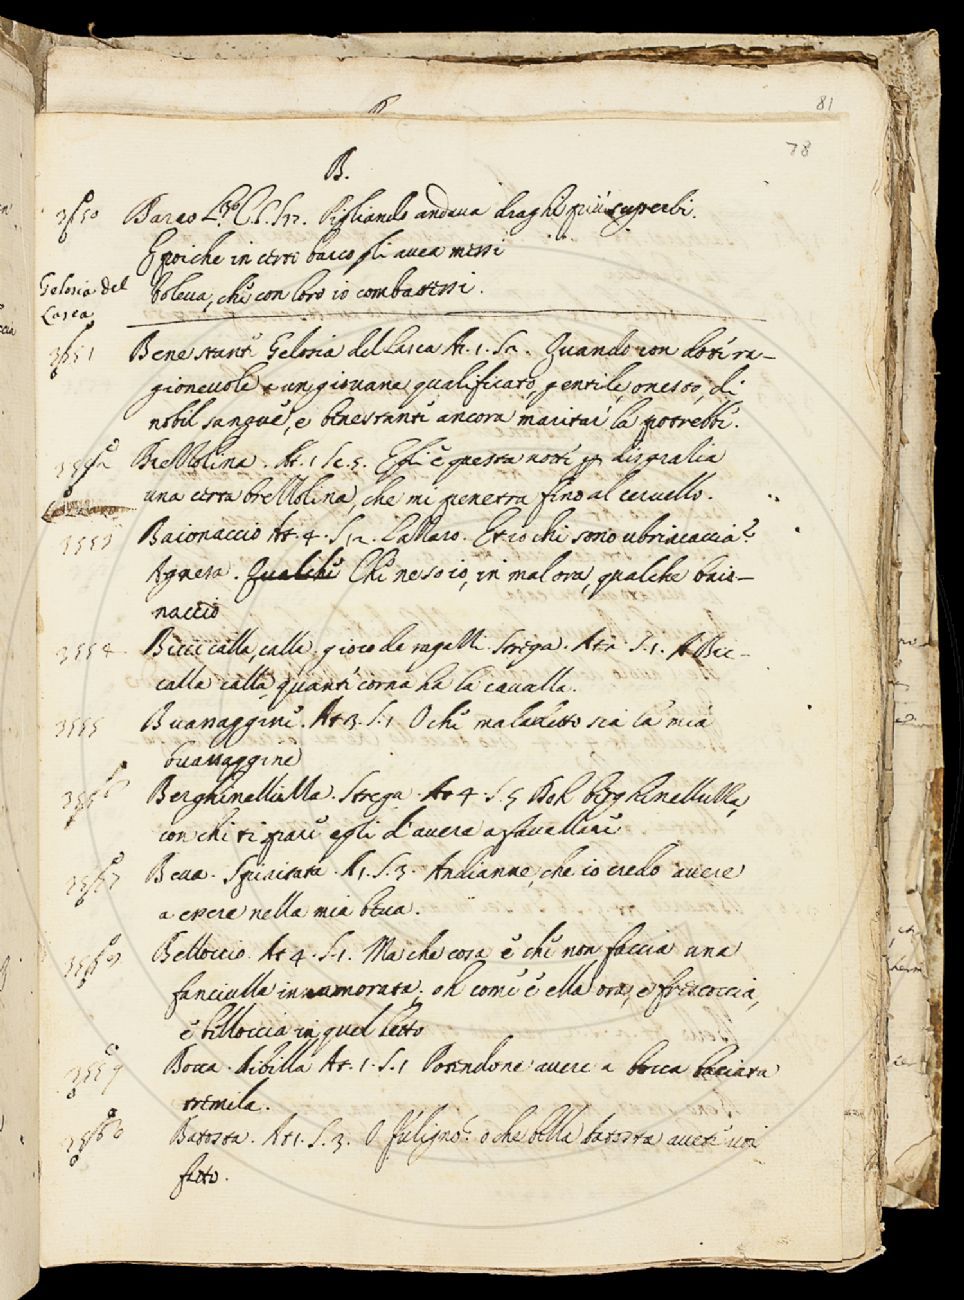 81
78
B.
3550 Barco L. C. S. Pigliando andava draghi più superbi.
E poiche in certo barco gli avea messi
Gelosia del Lasca
Voleva, che con loro io combatessi.
3551 Benestante Gelosia del Lasca At. 1. S. 2. Quando con dote ra-
gionevole a un giovane qualificato, gentile, onesto, di
nobil sangue, e benestante ancora maritar la potrette.
3552 Brezzolina. At. 1 Sc. 5. Egli è questa notte p disgrazia
una certa brezzolina, che mi penetra fino al cervello.
3553 Baionaccio At. 4. S. 12. Lazzaro. Et io chi sono ubriacaccia?
Agnesa. Qualche Che ne so io, in mal ora, qualche baio-
naccio
3554 Biccicalla, calla, gioco da ragazzi. Strega. At 2. S. 1. A Bicc-
calla calla, quante corna ha la cavalla.
3555 Buassaggine. At 3. S. 1 O che maladetto sia la mia
buassaggine
3556 Berghinelluzza. Strega. At 4. S. 5 Doh berghinelluzza,
con chi ti pare egli d'avere a favellare
3557 Beva. Spiritata. A 1. S. 3. Andianne, che io credo avere
a essere nella mia beva.
3558 Belloccio. At 4. S. 1. Ma che cosa è che non faccia una
fanciulla innamorata, oh come è ella ora, e frescoccia,
e belloccia in quel letto
3559 Bocca. Sibilla At. 1. S. 1 Potendone avere a bocca baciata
tremila.
3560 Batosta. At 1. S. 3. O Fuligno. o che bella batosta avete voi
fatto.